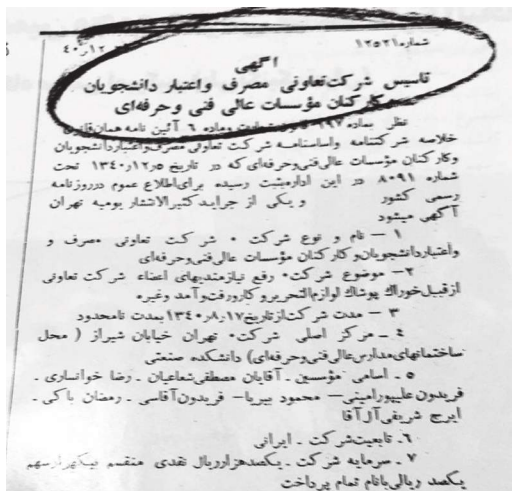 شماره ۱۲۵۲۱
۴۰٫۱۲٫
آگهی
تاسیس شرکت تعاونی مصرف و اعتبار دانشجویان
و کارکنان مؤسسات عالی فنی و حرفه‌ای
نظر بماده ۱۹۷ قانون تجارت و ماده ۶ آئین نامه همان قانون
خلاصه شرکتنامه و اساسنامه شرکت تعاونی مصرف و اعتبار دانشجویان
و کارکنان مؤسسات عالی فنی و حرفه‌ای که در تاریخ ۱۳۴۰٫۱۲٫۵ تحت
شماره ۸۰۹۱ در این اداره بثبت رسیده برای اطلاع عموم در روزنامه
رسمی کشور و یکی از جراید کثیرالانتشار یومیه تهران
آگهی میشود
۱ – نام و نوع شرکت • شرکت تعاونی مصرف و
واعتبار دانشجویان و کارکنان مؤسسات عالی فنی و حرفه‌ای
۲ – موضوع شرکت • رفع نیازمندیهای اعضاء شرکت تعاونی
از قبیل خوراک پوشاک لوازم‌التحریر و کار و رفت و آمد و غیره
۳ – مدت شرکت از تاریخ ۱۳۴۰٫۸٫۱۷ بمدت نامحدود
۴ – مرکز اصلی شرکت • تهران خیابان شیراز ( محل
ساختمانهای مدارس عالی فنی و حرفه‌ای) دانشکده صنعتی
۵ – اسامی مؤسسین – آقایان مصطفی شعاعیان – رضا خوانساری –
فریدون علیپور امینی – محمود بیریا – فریدون آقاسی – رمضان باکی –
ایرج شریفی آل آقا
۶ – تابعیت شرکت – ایرانی
۷ – سرمایه شرکت – یکصد هزار ریال نقدی منقسم بیکهزار سهم
یکصد ریالی بانام تمام پرداخت